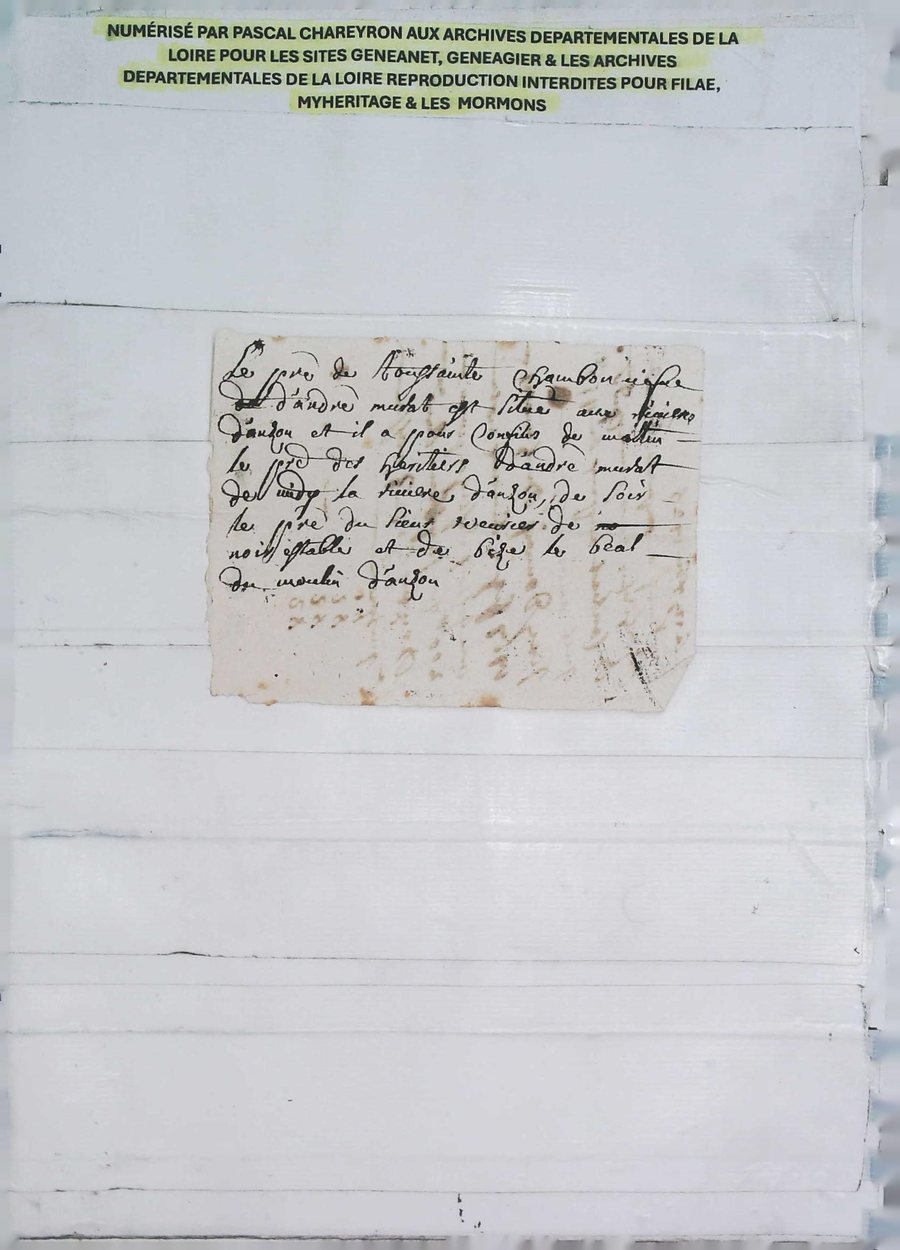 NUMÉRISÉ PAR PASCAL CHAREYRON AUX ARCHIVES DEPARTEMENTALES DE LA
LOIRE POUR LES SITES GENEANET, GENEAGIER & LES ARCHIVES
DEPARTEMENTALES DE LA LOIRE REPRODUCTION INTERDITES POUR FILAE,
MYHERITAGE & LES MORMONS
Le pré de toussainte Chambon
d'andré murat est situé riviere
d'anzon et il a pour Confins de matin
le pré des heritiers d'andré murat
de midy la riviere d'anzon, de soir
le pré du sieur de
noirestable et de bize le beal
du moulin d'anzon